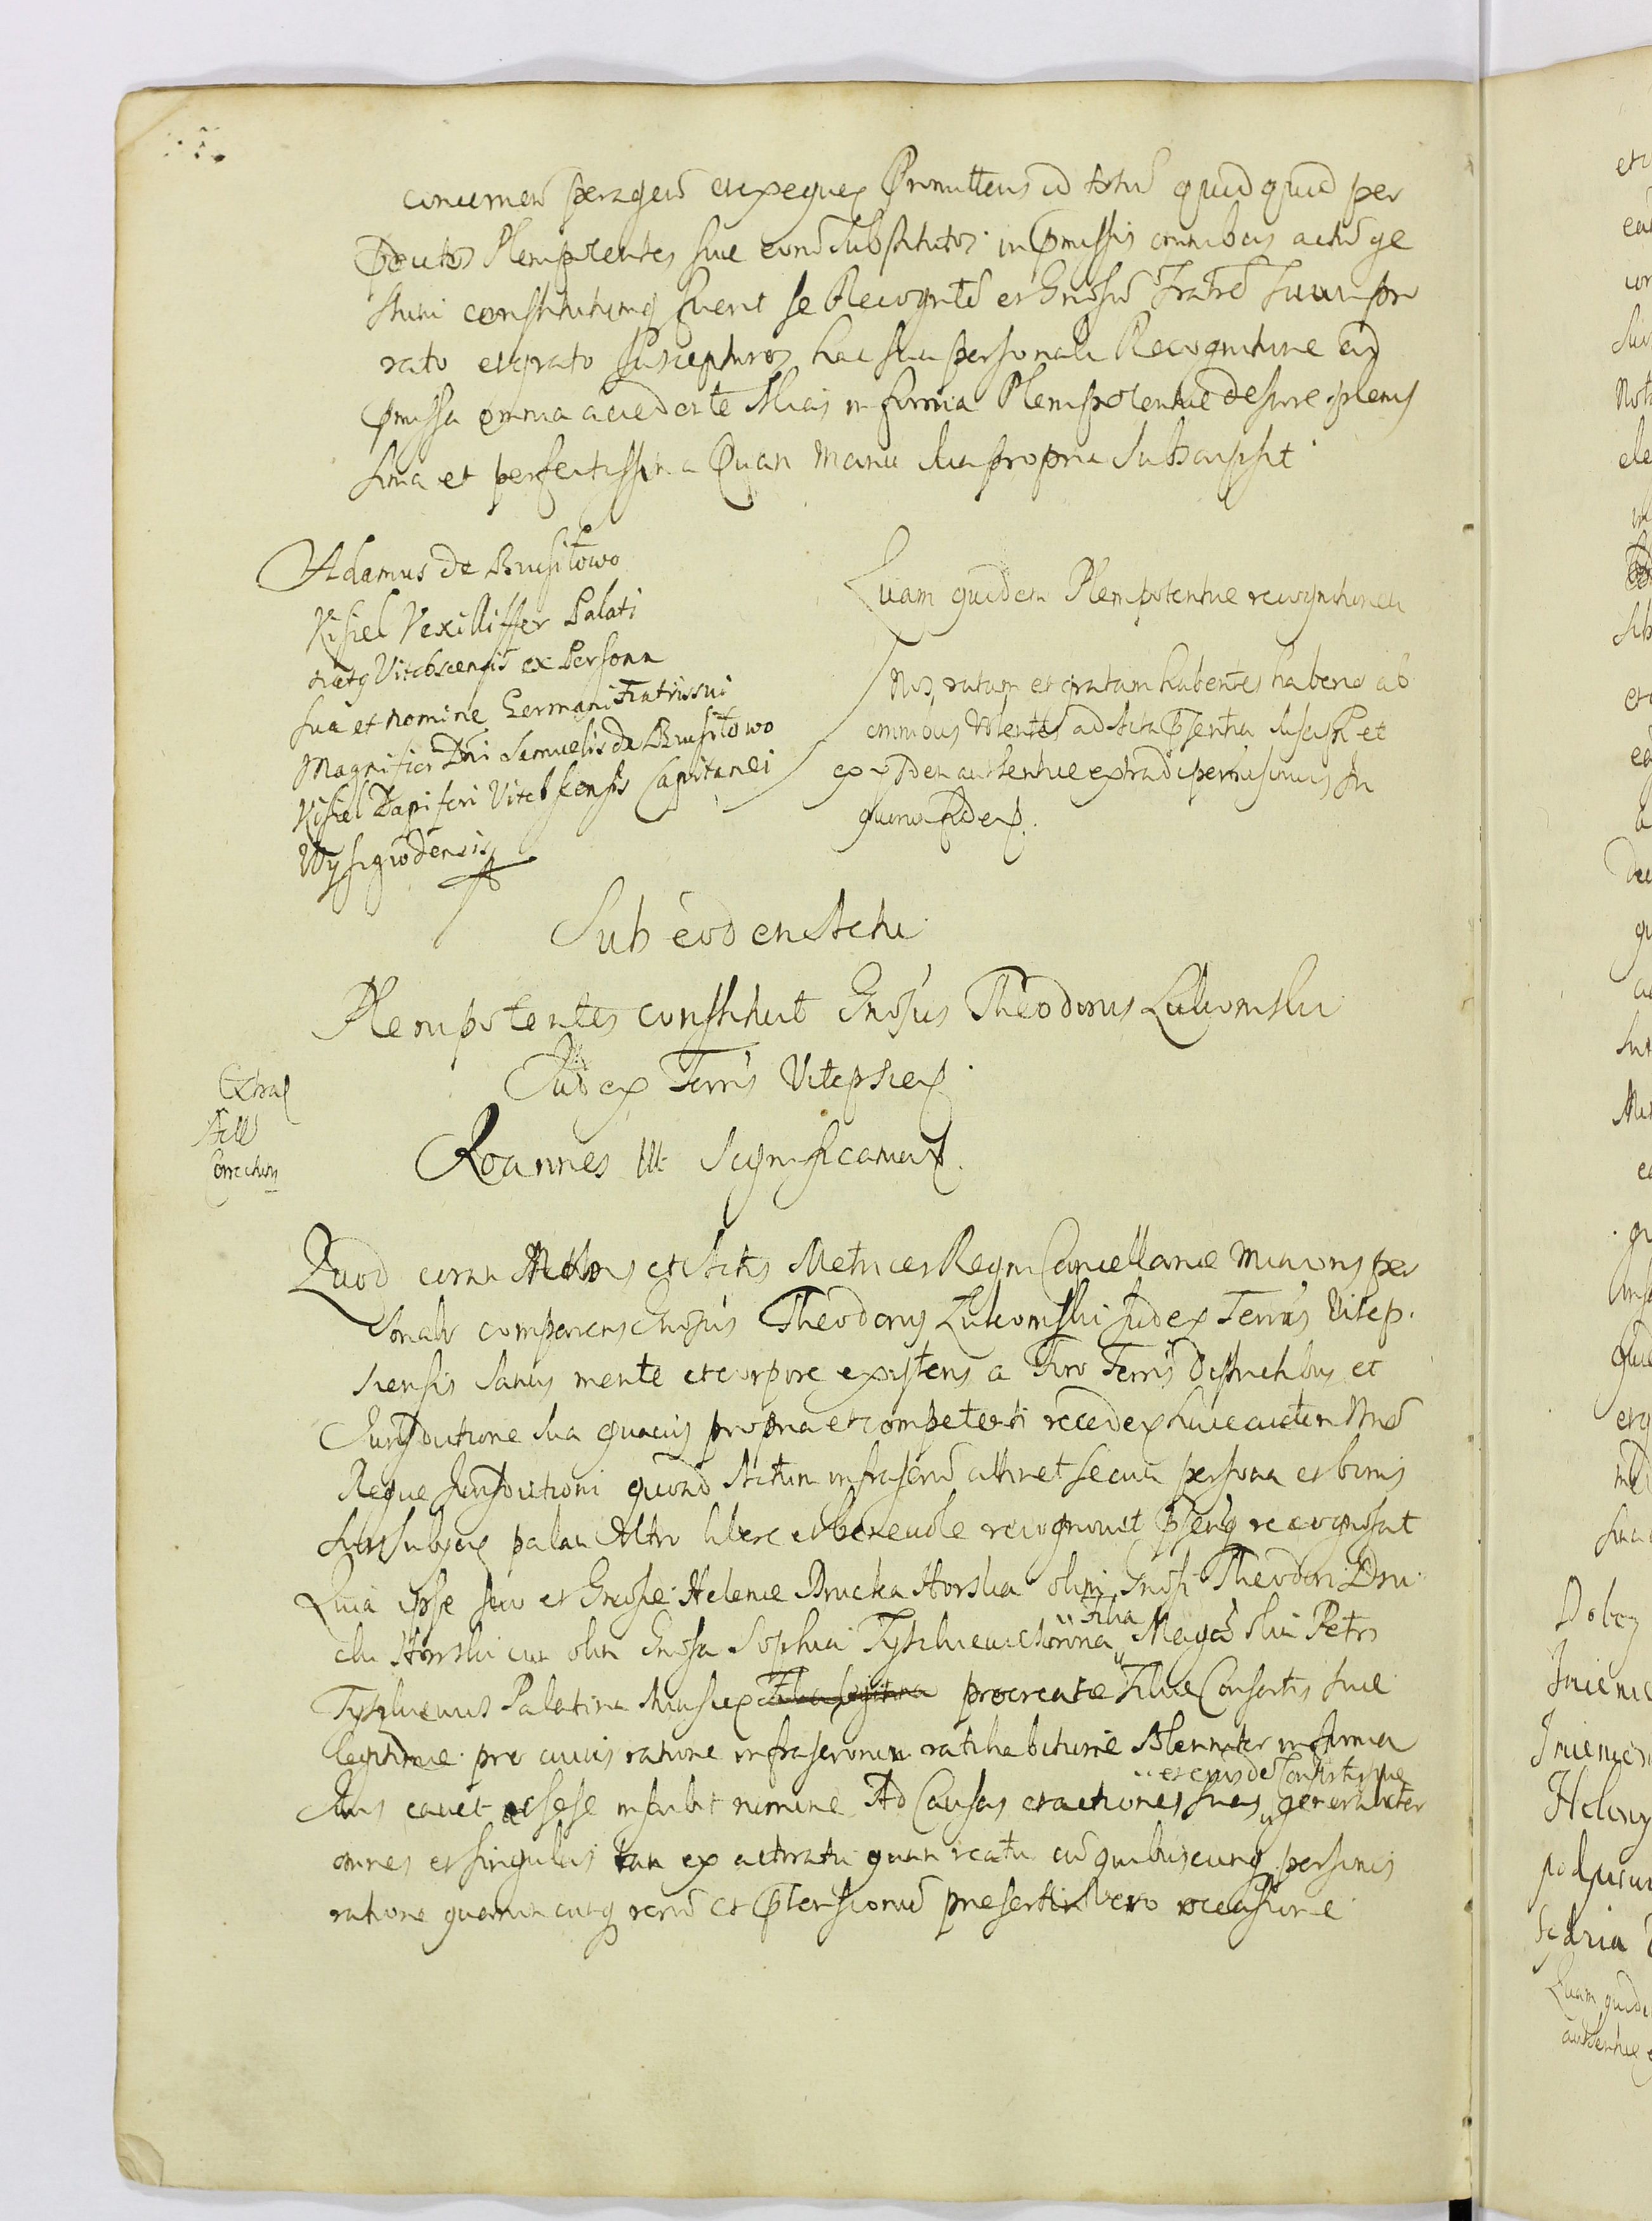 concernen peragend et exequen Promittens id totum quidquid per
Pdictos Plenipotentes sive eorum substitutos in Pmissis omnibus actum ge
stum constitutumq fuerit se Recogntem et Gnosum Fratrem Suum pro
rato et grato suscepturos hac sua personali Recognitione ad
pmissa omnia accedente Alias in forma Plenipotentiae de jure plenis
sima et perfectissima Quam manu sua propria Subscripsit
Adamus de Brusiłowo
Kisiel Vexillifer Palati
natq Vitebscensis ex Persona
sua et nomine Germani Fratris sui
Magnifici Dni Samuelis de Brusiłowo
Kisiel Dapiferi Vitebscensis Capitanei
Wyszigrodensis
Quam quidem Plenipotentiae recognitionem
Nos ratam et gratam habentes haberiq ab
omnibus volentes ad Acta Psentia suscipi et
ex ijsdem authentice extradi permisimus In
quorum fidem
Sub eodem Actu
Plenipotentes constituit Gnosus Theodorus Lukomski
Judex Terris Vitepscen
Extrad
Correctum
Joannes III Significamus
Quod coram Nobis et Actis Metrices Regni Cancellariae Minoris per
sonaliter comparens Gnosus Theodorus Lukomski Judex Terris Vitep
scensis Sanus mente et corpore existens a Foro Terris Districtibus et
Jurisdictione sua quavis propria et competenti recedex huic autem Nrae
Regiae Jurisdictioni quoad Actum infrascrum attinet se cum persona et bonis
suis subijcien palam ultro libere et benevole recognovit Psensq recognoscit
Quia ipse suo et Gnosae Helenae Drucka Horska olim Gnosi Theodori Dru
cki Horski cum olim Gnosa Sophia Tyszkiewiczowna filia Magci olim Petri
Tyszkiewicz Palatini Minscen filia legitima procreatae Filiae Consortis suae
legitimae pro cuius ratione infrascriptorum ratihabitione Plenarie in forma
Juris cavet ac sese inscribit nomine Ad Causas et actiones suas et eiusdem Consortis suae generaliter
omnes et singulas tam ex actoratu quam reatu cum quibuscunq personis
ratione quarumcunq rerum et Ptensionum praesertim vero occasione